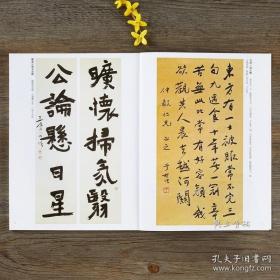 東方有一士被服常不完三
旬九遇食十年著一冠辛
苦無此比常有好容顏我
欲觀其人晨去越河關
于右任
曠懷掃氛翳
公論懸日星
孔夫子旧书网